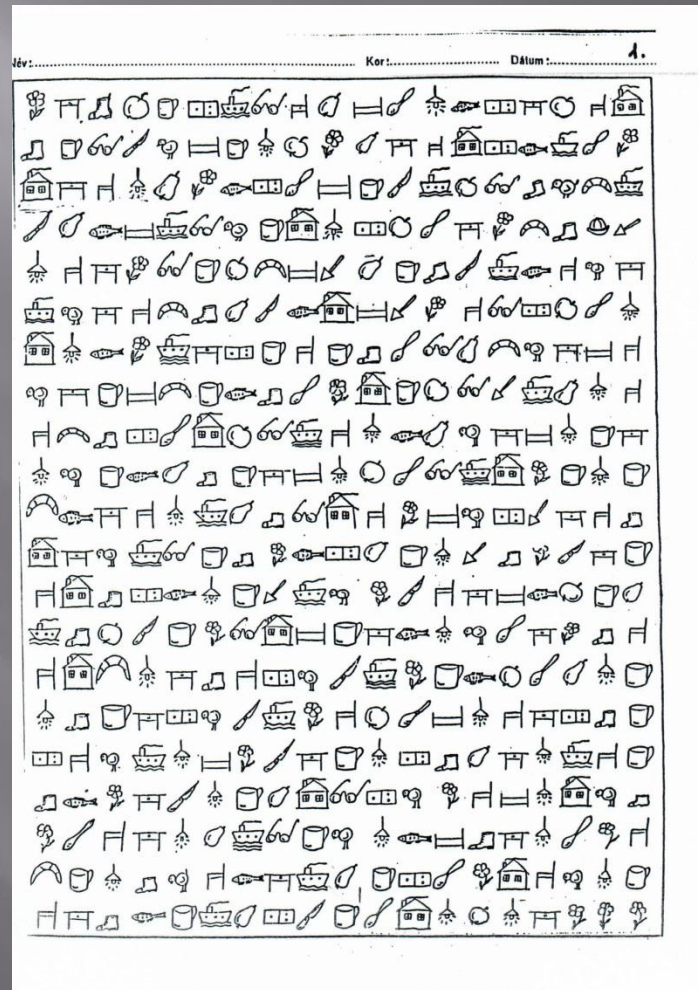 1.
Név:........ Kor:........ Dátum:........